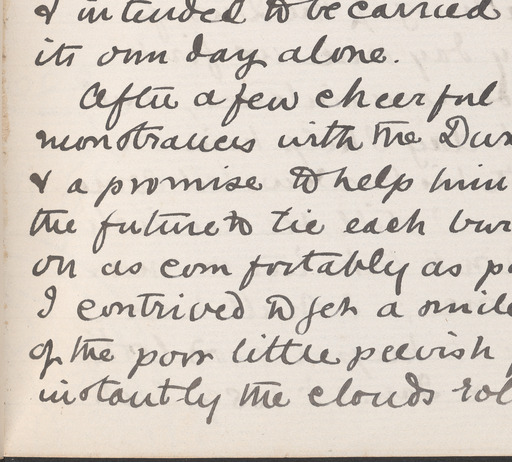 & intended to be carried
its own day alone.
After a few cheerful
monstrances with the
& a promise to help him
the future to tie each bur
on as comfortably as
I contrived to get a smile
of the poor little peevish
instantly the clouds rol